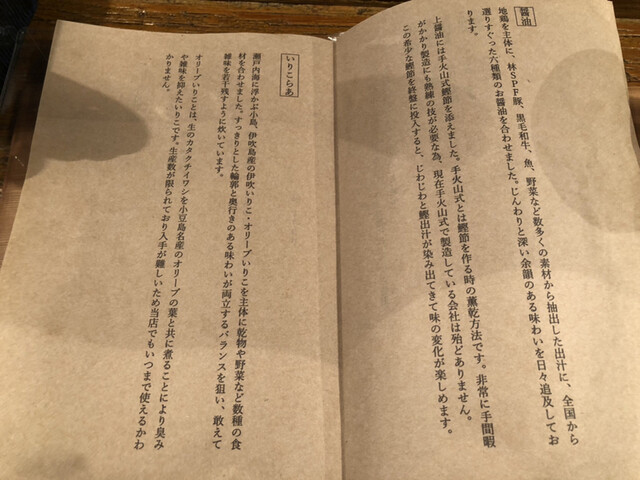 醤油
地鶏を主体に、林SPF豚、黒毛和牛、魚、野菜など数多くの素材から抽出した出汁に、全国から
選りすぐった六種類のお醤油を合わせました。じんわりと深い余韻のある味わいを日々追及してお
ります。
上醤油には手火山式鰹節を添えました。手火山式とは鰹節を作る時の薫乾方法です。非常に手間暇
がかかり製造にも熟練の技が必要な為、現在手火山式で製造している会社は殆どありません。
この希少な鰹節を終盤に投入すると、じわじわと鰹出汁が染み出てきて味の変化が楽しめます。
いりこらあ
瀬戸内海に浮かぶ小島、伊吹島産の伊吹いりこ・オリーブいりこを主体に乾物や野菜など数種の食
材を合わせました。すっきりとした輪郭と奥行きのある味わいが両立するバランスを狙い、敢えて
雑味を若干残すように炊いています。
オリーブいりことは、生のカタクチイワシを小豆島名産のオリーブの葉と共に煮ることにより臭み
や雑味を抑えたいりこです。生産数が限られており入手が難しいため当店でもいつまで使えるかわ
かりません。